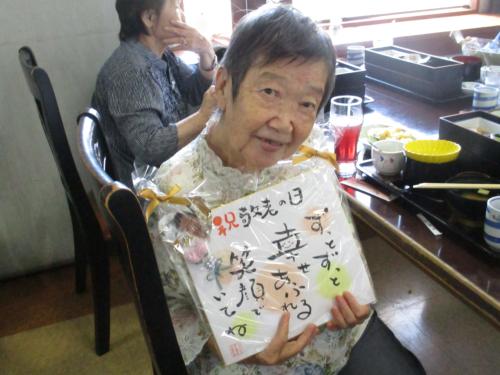 祝 敬老の日
ずっとずっと
幸せあふれる
笑顔で
いてね